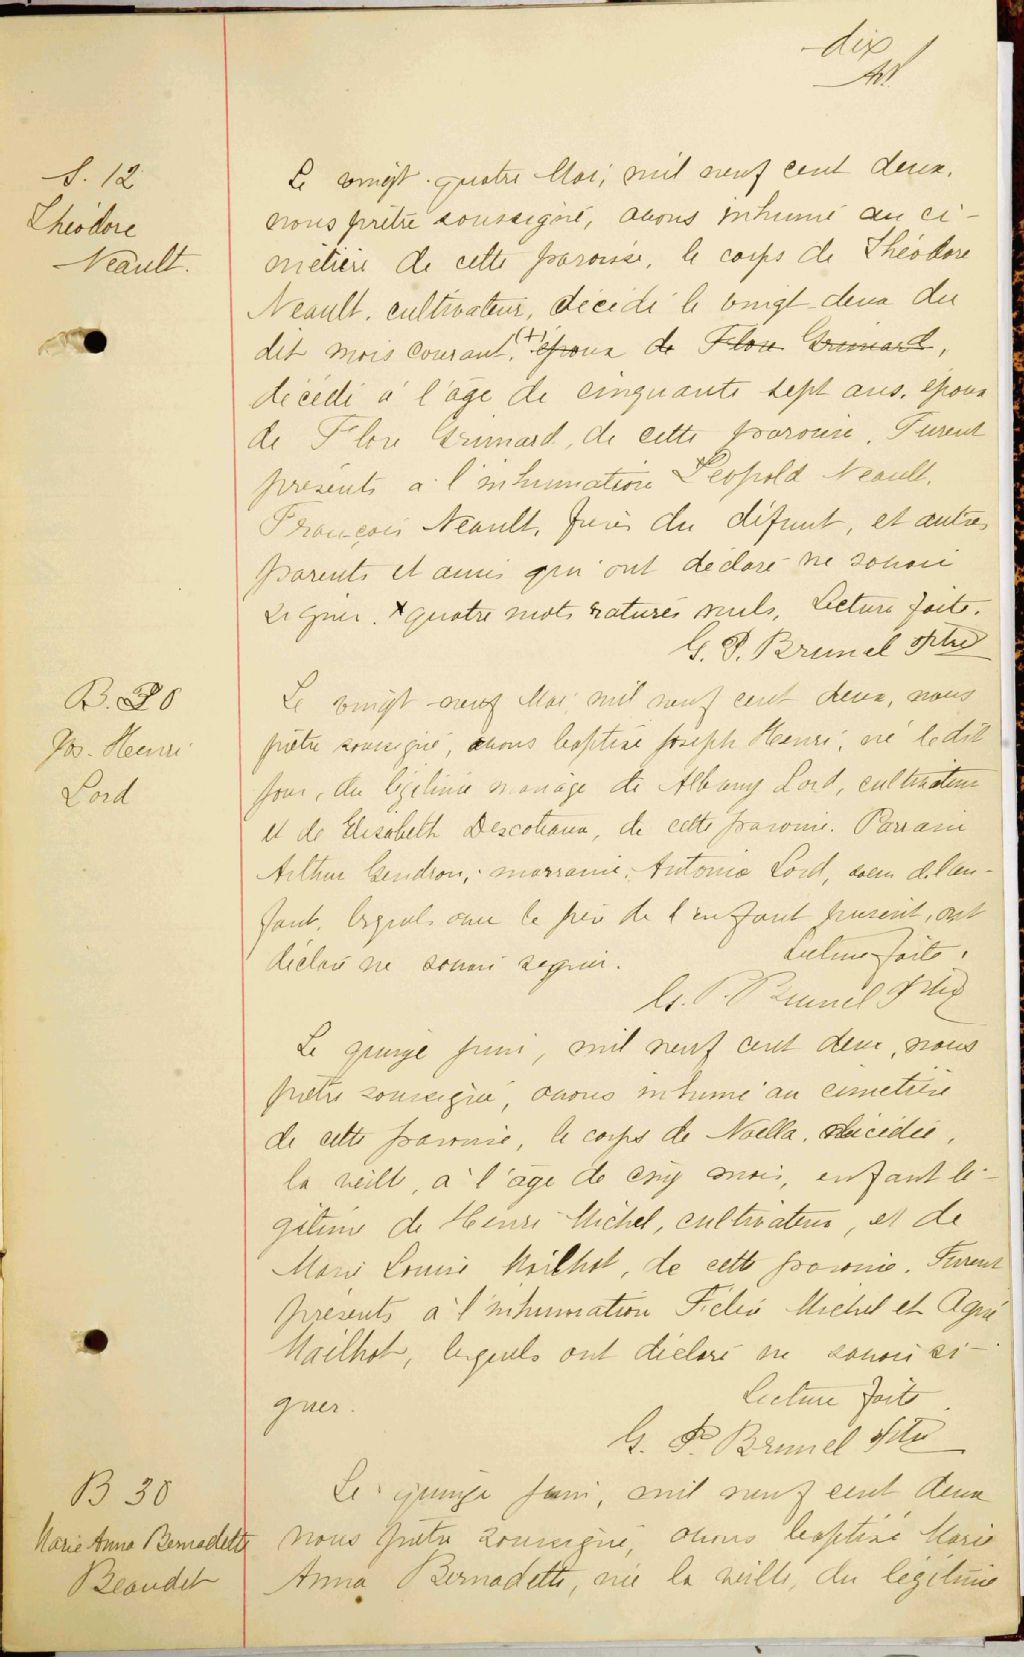 dix
S. 12
Théodore
Neault.
Le vingt-quatre Mai, mil neuf cent deux,
nous prêtre soussigné, avons inhumé au ci-
metière de cette paroisse, le corps de Théodore
Neault, cultivateur, décédé le vingt-deux du
dit mois courant, (+) époux de Flore Grimard,
décédé à l'âge de cinquante sept ans, époux
de Flore Grimard, de cette paroisse. Furent
présents à l'inhumation Léopold Neault,
François Neault, frères du défunt, et autres
parents et amis qui ont déclaré ne savoir
signer. x quatre mots raturés nuls. Lecture faite.
G. P. Brunel Ptre
B.
Jos. Henri
Lord
Le vingt-neuf Mai, mil neuf cent deux, nous
prêtre soussigné, avons baptisé Joseph Henri, né le dit
jour, du légitime mariage de Albany Lord, cultivateur
et de Elisabeth Descoteaux, de cette paroisse. Parrain
Arthur Gendron, marraine, Antonia Lord, soeur de l'en-
fant, lesquels avec le père de l'enfant présent, ont
déclaré ne savoir signer. Lecture faite.
G. P. Brunel Ptre
Le quinze juin, mil neuf cent deux, nous
prêtre soussigné, avons inhumé au cimetière
de cette paroisse, le corps de Noella, décédée,
la veille, à l'âge de cinq mois, enfant lé-
gitime de Henri Michel, cultivateur, et de
Marie Louise Mailhot, de cette paroisse. Furent
présents à l'inhumation Félix Michel et
Mailhot, lesquels ont déclaré ne savoir si-
gner. Lecture faite.
G. P. Brunel Ptre
B 30
Marie Anna Bernadette
Beaudet
Le quinze juin, mil neuf cent deux
nous prêtre soussigné, avons baptisé Marie
Anna Bernadette, née la veille, du légitime